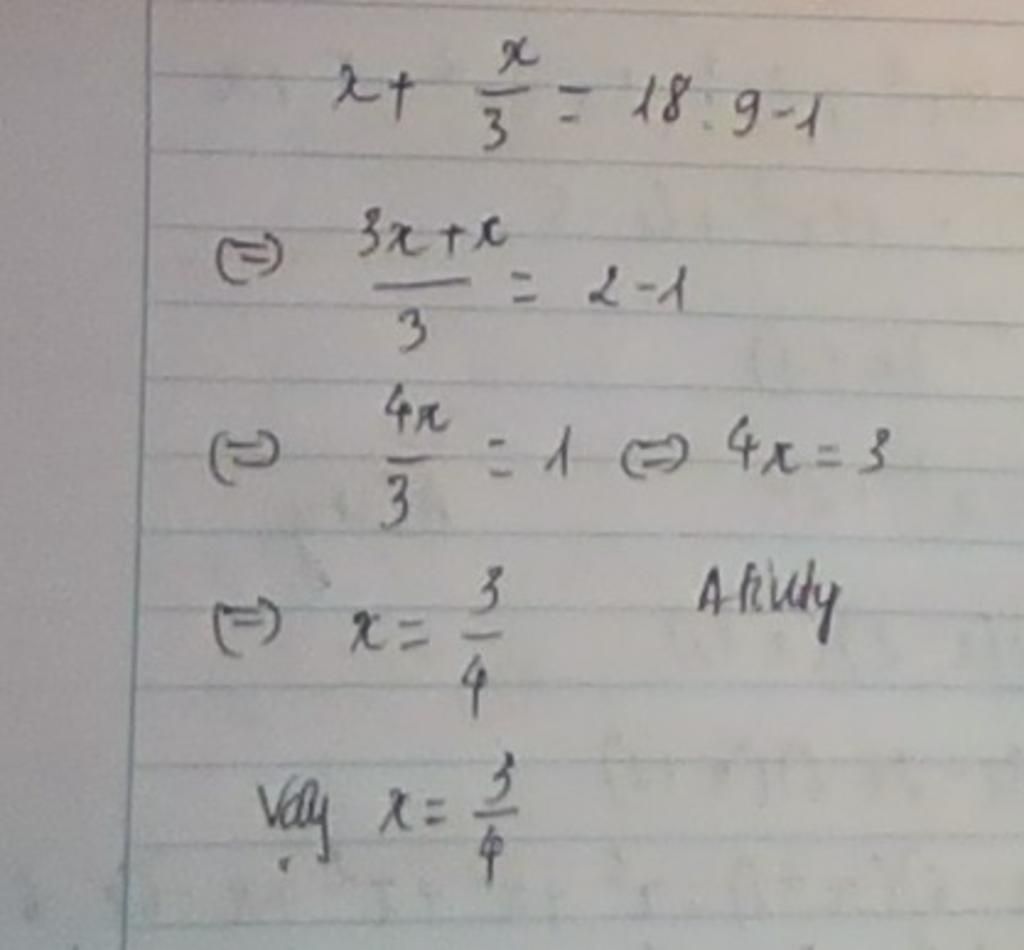 x + x/3 = 18 : 9 - 1
(=) (3x + x)/3 = 2 - 1
(=) 4x/3 = 1 (=) 4x = 3
(=) x = 3/4
Vậy x = 3/4